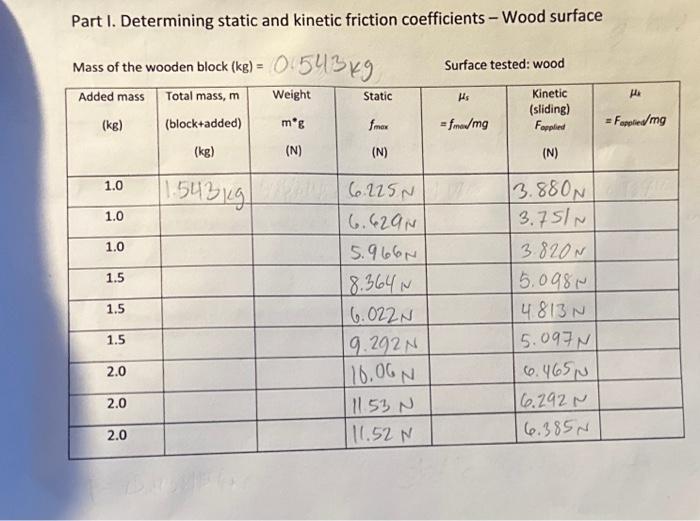 Part I. Determining static and kinetic friction coefficients – Wood surface
Mass of the wooden block (kg) = 0.543kg Surface tested: wood
Added mass (kg) Total mass, m (block+added) (kg) Weight m*g (N) Static fmax (N) μs = fmax/mg Kinetic (sliding) Fapplied (N) μk = Fapplied/mg
1.0 1.543kg 6.225N 3.880N
1.0 6.629N 3.751N
1.0 5.966N 3.820N
1.5 8.364N 5.098N
1.5 6.022N 4.813N
1.5 9.292N 5.097N
2.0 10.06N 6.465N
2.0 11.53 N 6.292N
2.0 11.52 N 6.385N